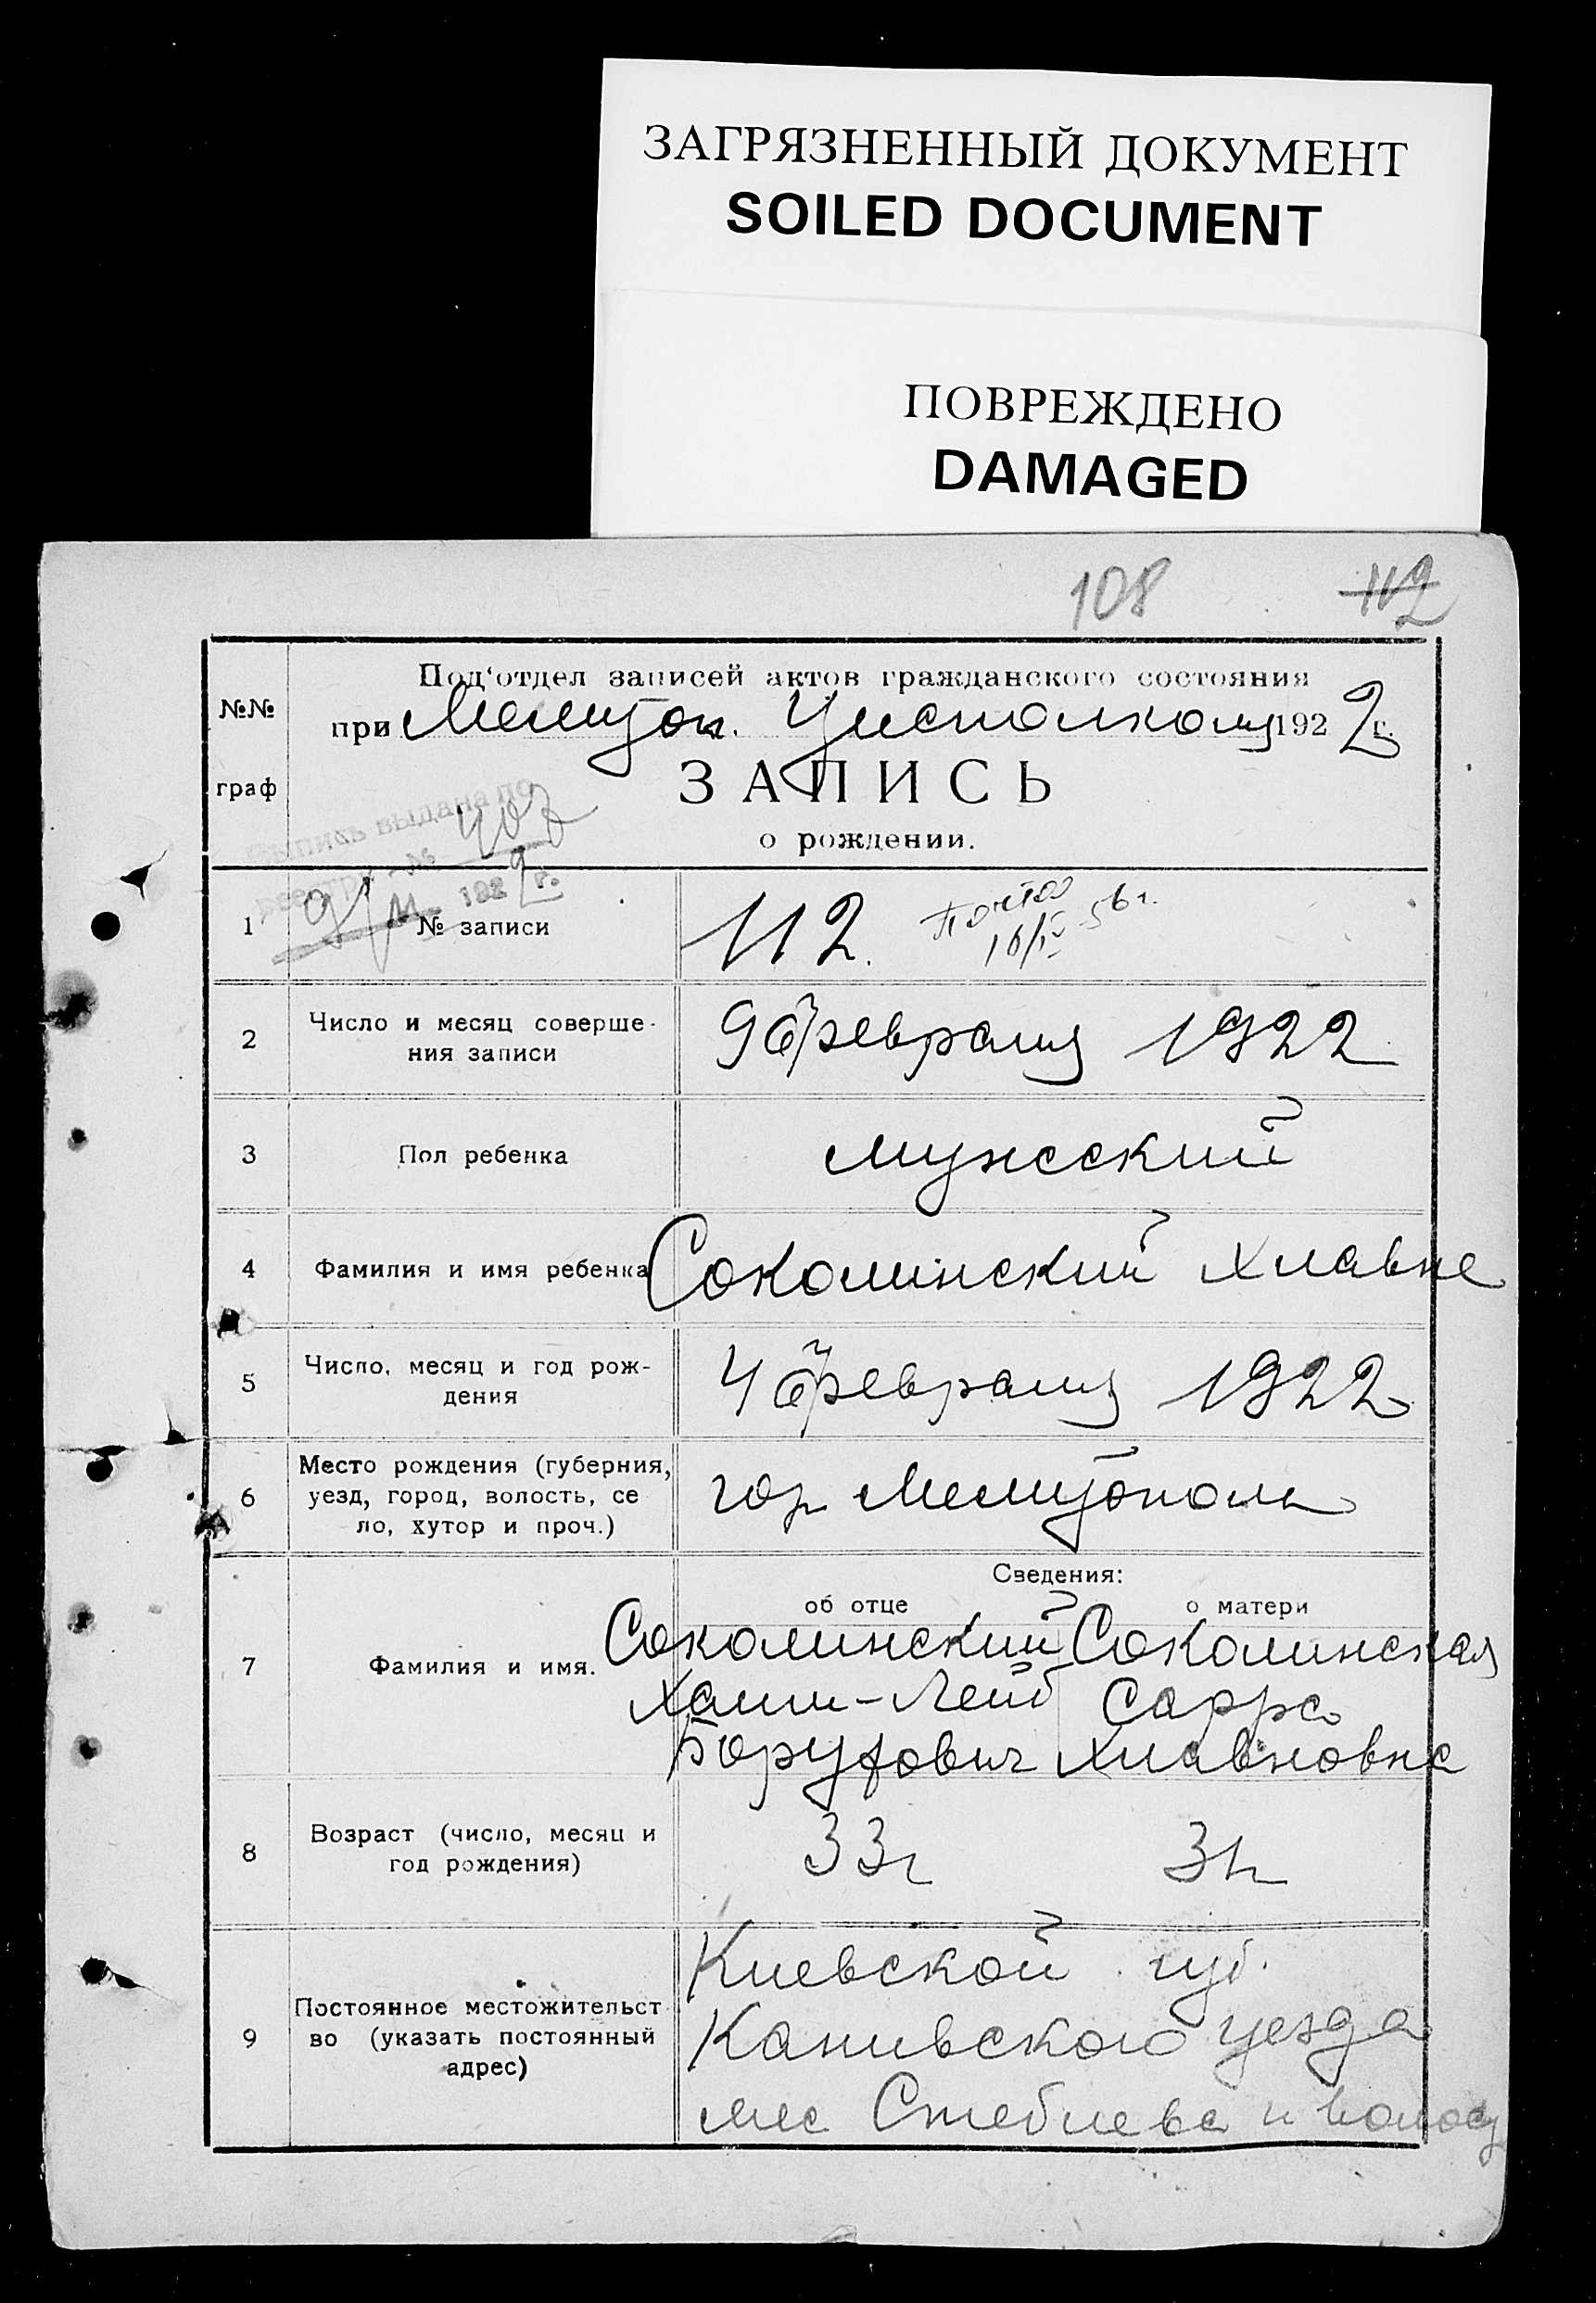 ЗАГРЯЗНЕННЫЙ ДОКУМЕНТ
SOILED DOCUMENT
ПОВРЕЖДЕНО
DAMAGED
108 112
№№ граф
Под'отдел записей актов гражданского состояния
при Мелитоп. Уисполкому 1922 г.
ЗАПИСЬ
о рождении.
выпись выдана по
реестру № 403
9/VI 1922 г.
1 № записи 112. Почтой
16/IV-56 г.
2 Число и месяц соверше-
ния записи
9 февраля 1922
3 Пол ребенка мужеский
4 Фамилия и имя ребенка Соколинский Хлавне
5 Число, месяц и год рож-
дения
4 февраля 1922
6 Место рождения (губерния,
уезд, город, волость, се
ло, хутор и проч.)
гор Мелитополь
Сведения:
об отце о матери
7 Фамилия и имя. Соколинский Соколинская
Хаим-Лейб Сарра
Борухович Хлавновна
8 Возраст (число, месяц и
год рождения)
33 г 31 г
9 Постоянное местожительст
во (указать постоянный
адрес)
Киевской губ.
Каневского уезда
мес Стеблева и волос